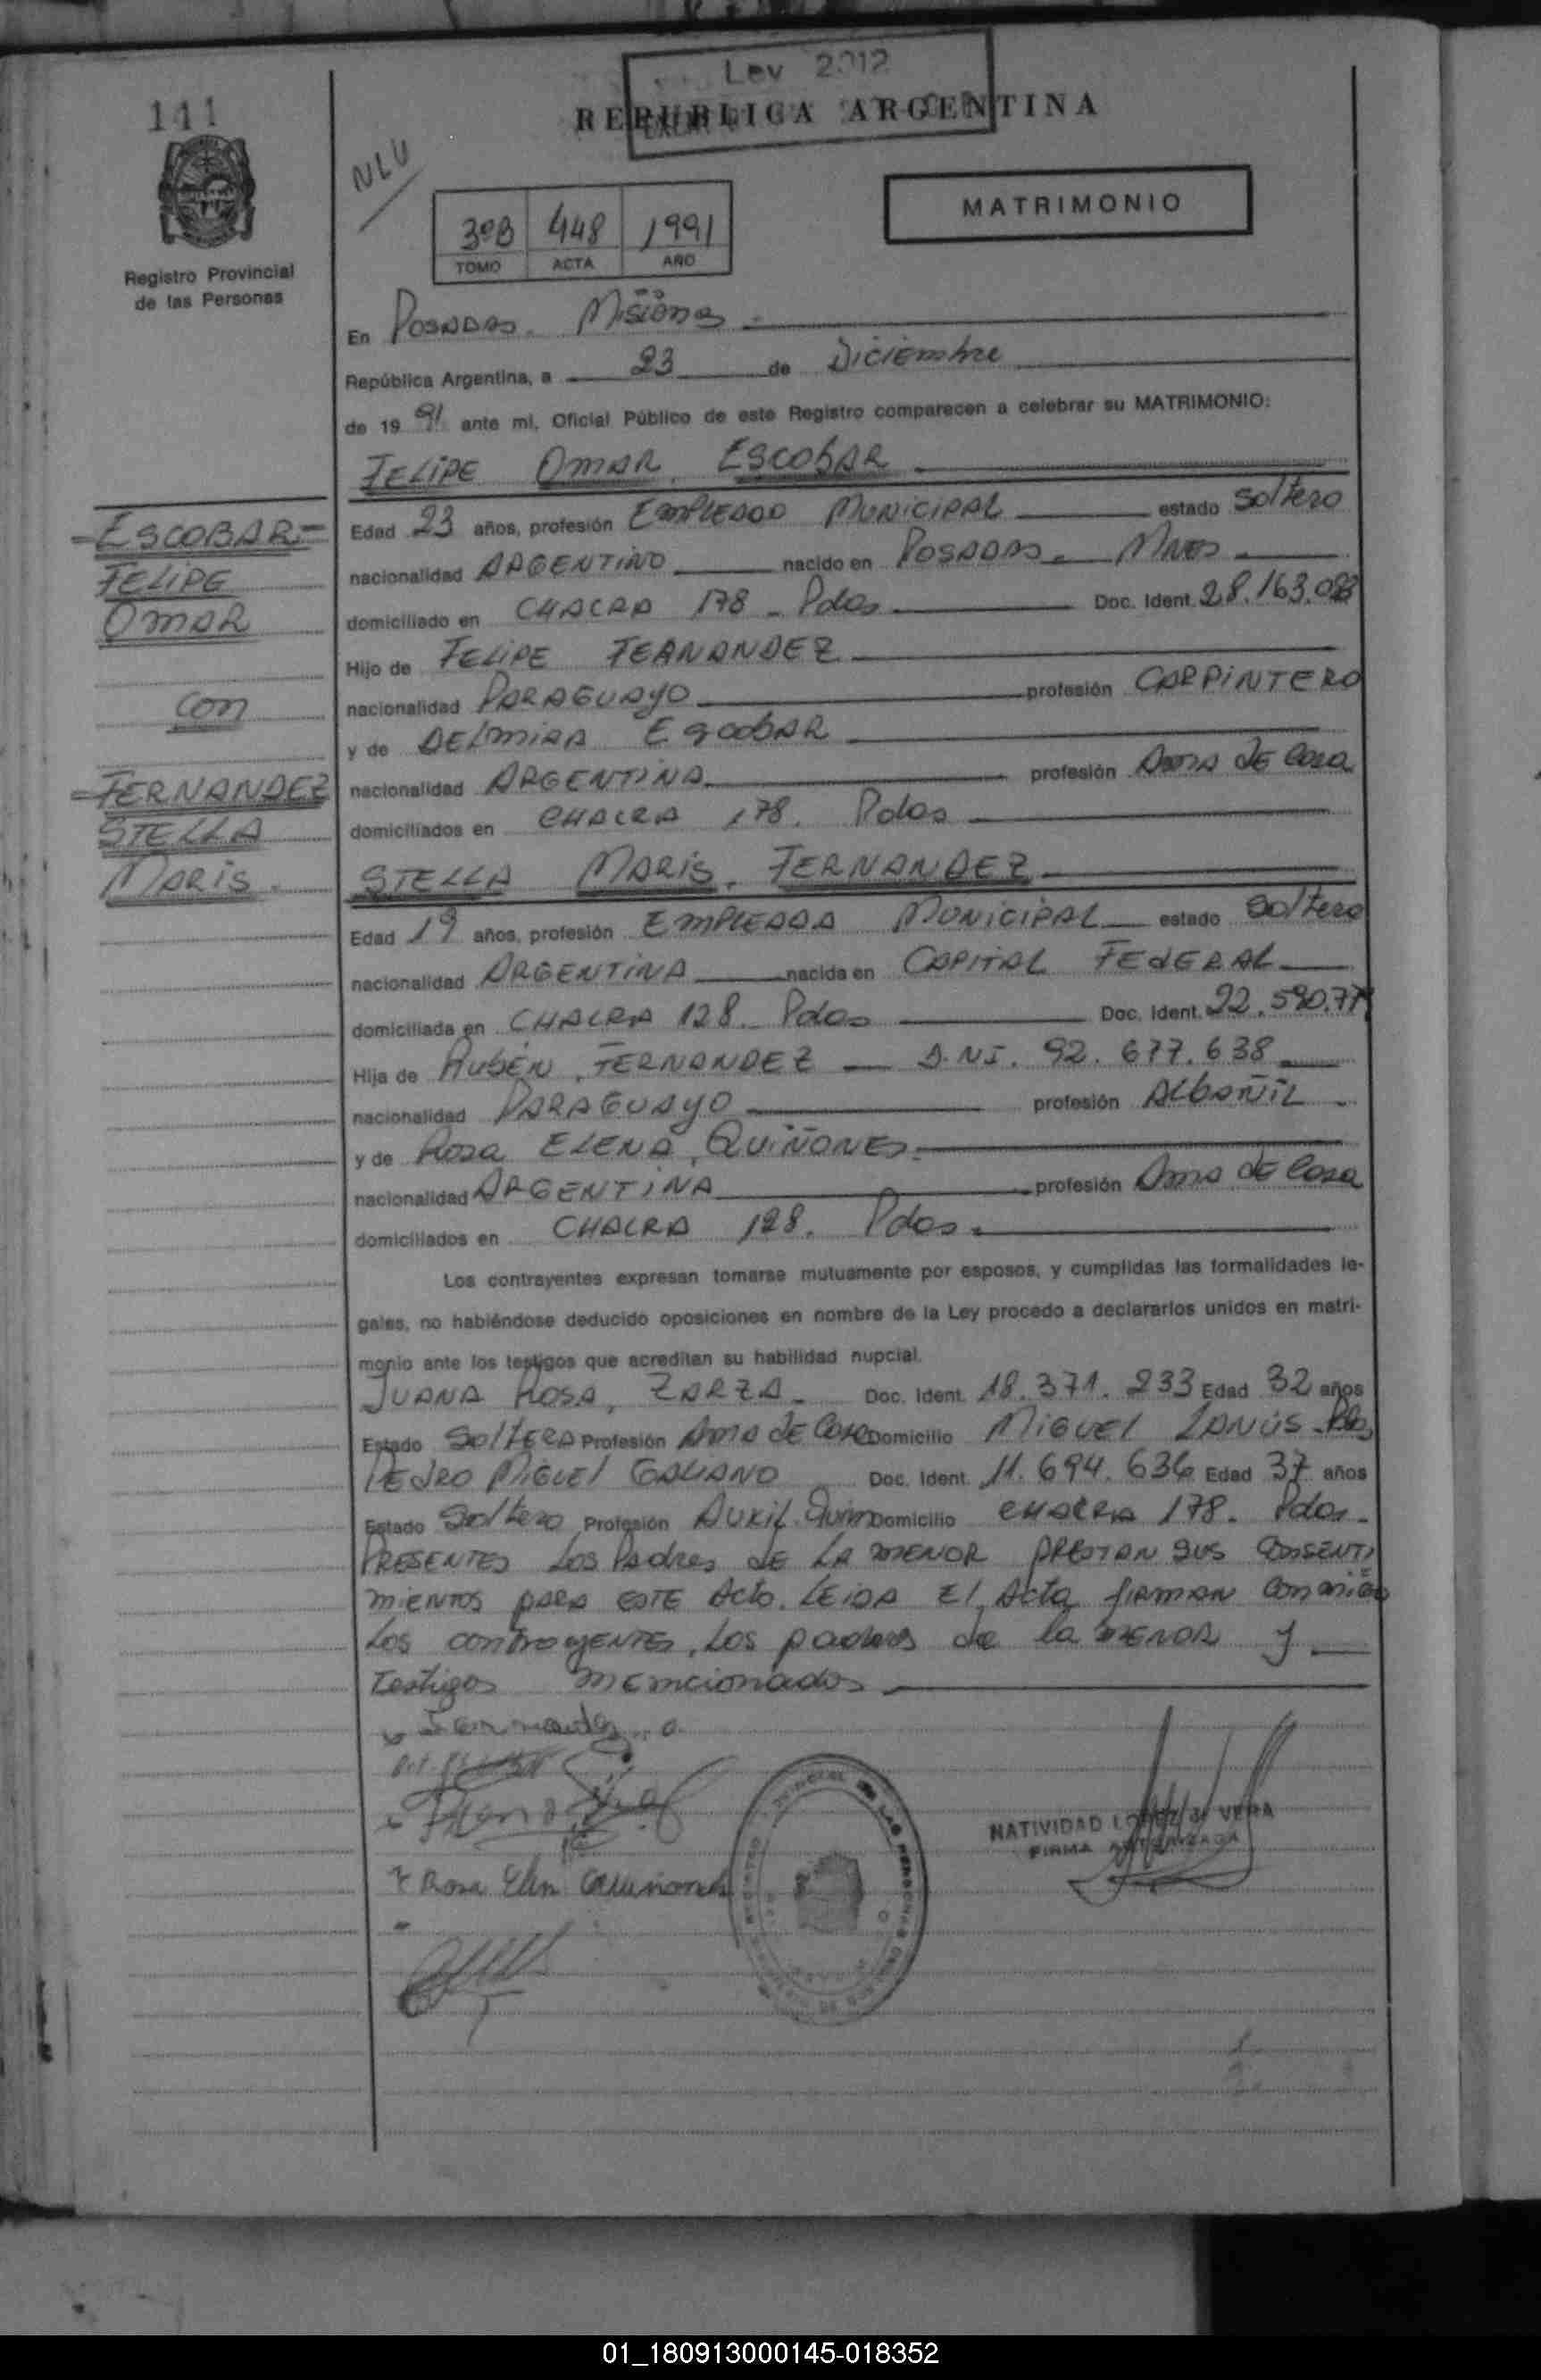 Ley 2012
141
REPUBLICA ARGENTINA
NLU
MATRIMONIO
3ºB 448 1991
TOMO ACTA AÑO
Registro Provincial
de las Personas
En Posadas. Misiones
República Argentina, a 23 de Diciembre
de 1991 ante mi, Oficial Público de este Registro comparecen a celebrar su MATRIMONIO:
FELIPE OMAR. ESCOBAR
Edad 23 años, profesión EMPLEADO MUNICIPAL estado Soltero
nacionalidad ARGENTINO nacido en POSADAS. Mnes
domiciliado en CHACRA 178 - Pdas Doc. Ident. 28.163.083
Hijo de FELIPE FERNANDEZ
nacionalidad PARAGUAYO profesión CARPINTERO
y de DELMIRA ESCOBAR
nacionalidad ARGENTINA profesión Ama de Casa
domiciliados en CHACRA 178. Pdas
STELLA MARIS. FERNANDEZ
Edad 19 años, profesión EMPLEADA MUNICIPAL estado Soltera
nacionalidad ARGENTINA nacida en CAPITAL FEDERAL
domiciliada en CHACRA 128. Pdas Doc. Ident. 22.590.779
Hija de RUBEN. FERNANDEZ D.NI. 92.677.638
nacionalidad PARAGUAYO profesión ALBAÑIL
y de Rosa ELENA, QUIÑONES.
nacionalidad ARGENTINA profesión Ama de Casa
domiciliados en CHACRA 128. Pdas.
Los contrayentes expresan tomarse mutuamente por esposos, y cumplidas las formalidades le-
gales, no habiéndose deducido oposiciones en nombre de la Ley procedo a declararlos unidos en matri-
monio ante los testigos que acreditan su habilidad nupcial.
JUANA ROSA, ZARZA. Doc. Ident. 18.371.233 Edad 32 años
Estado SOLTERA Profesión Ama de Casa Domicilio MIGUEL LANÚS - Pdas
PEDRO MIGUEL GALIANO Doc. Ident. 11.694.636 Edad 37 años
Estado Soltero Profesión Auxil. Domicilio CHACRA 178. Pdas.
PRESENTES Los Padres DE LA MENOR PRESTAN SUS CONSENTI
MIENTOS PARA ESTE Acto. LEIDA El Acta firman conmigo
Los contrayentes, los padres de la MENOR y
Testigos mencionados
Rosa Elena Quiñones
NATIVIDAD LOPEZ de VERA
FIRMA AUTORIZADA
ESCOBAR=
FELIPE
OMAR
con
FERNANDEZ
STELLA
MARIS.
01_180913000145-018352